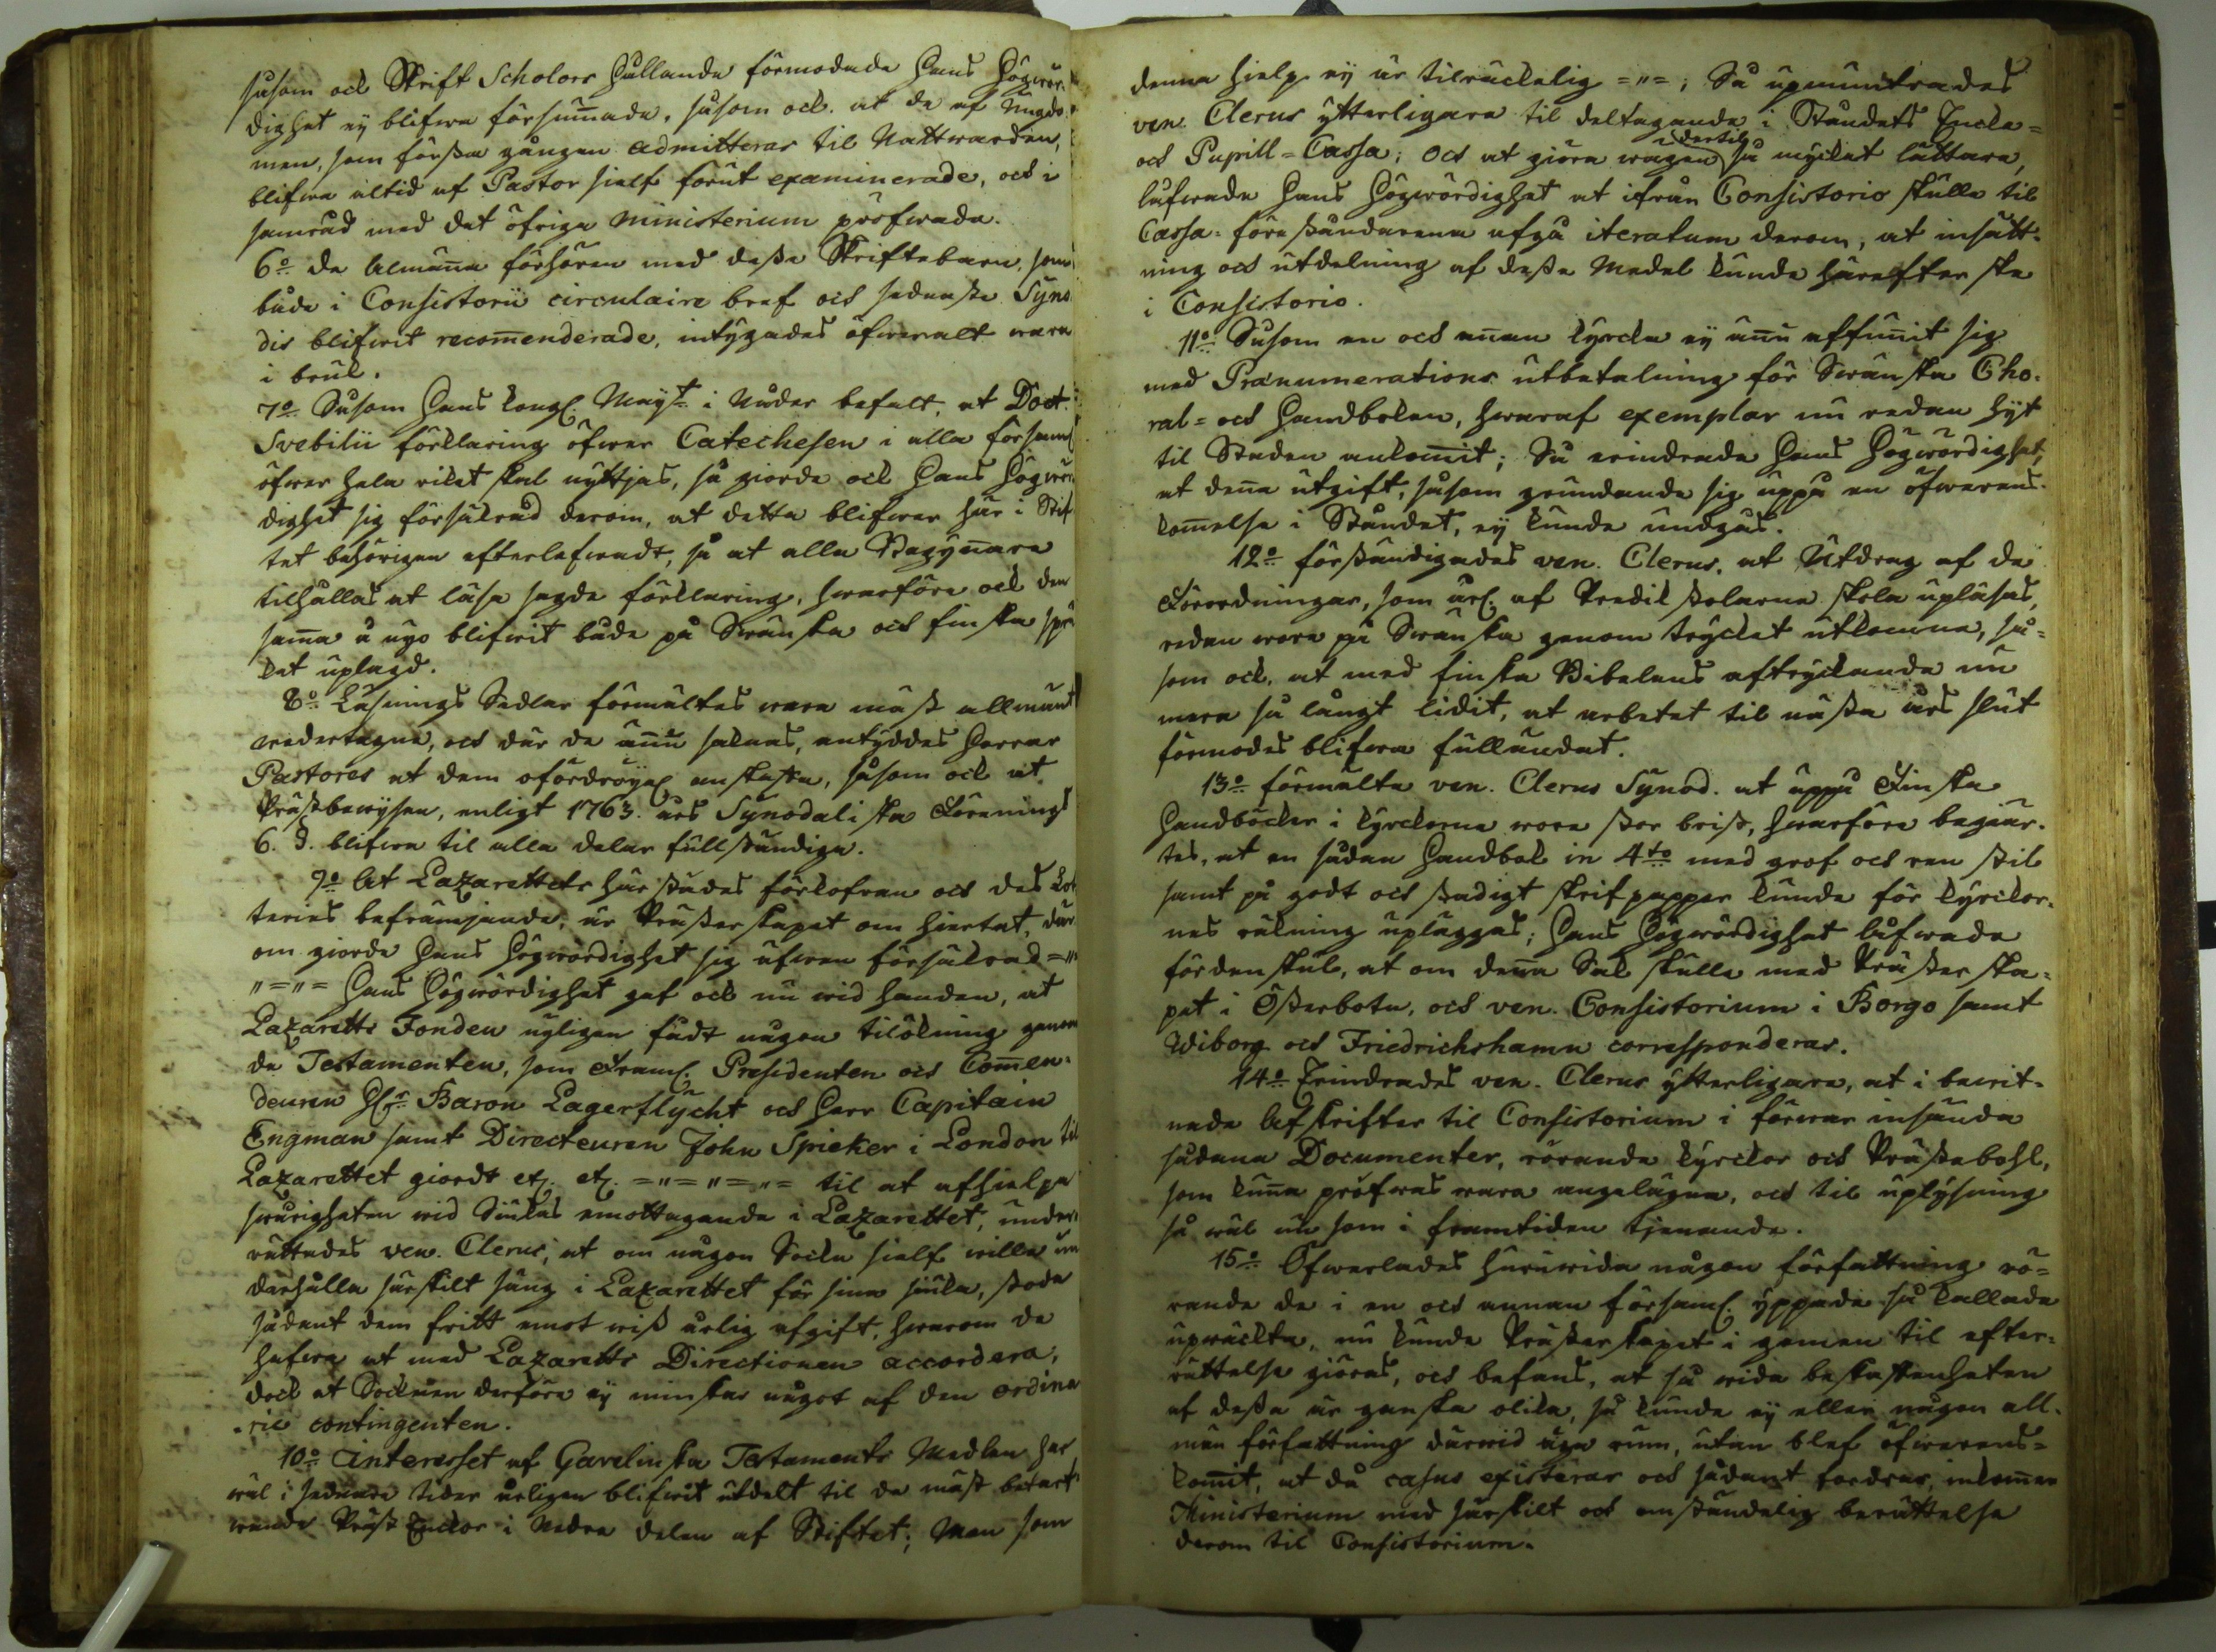 såsom ock Skrift Scholors hållande förmodade Hans Högwör-
dighet ej blifwa försummade, såsom ock at de af Ungdo-
men, som första gången admitteras til Nattwarden,
blifwa altid af Pastor sielf förut examinerade, och i
samråd med det öfriga Ministerium pröfwade.
6:o De Almänna förhören med desse Skriftebarn, som
både i Consistorii circulaire bref och sednaste Syno-
dis blifwit recommenderade, intygades öfweralt wara
i bruk.
7:o Såsom Hans Kongl. Maij:t i Nåder befalt, at Doct.
Svebilii förklaring öfwer Catechesen i alla församl.
öfwer hela riket skal nyttjas, så giorde ock Hans Högwör-
dighet sig försäkrad derom, at detta blifwer här i Stif-
tet behörigen efterlefwadt, så at alla Begynnare
tilhållas at läsa sagde förklaring, hwarföre ock den
samma å nyo blifwit både på Swänska och finska språ-
ket uplagd.
8:o Läsnings Sedlar förmältes wara mäst allmänt
wedertagne, och där de ännu saknas, antyddes Herrar
Pastores at dem ofördröyel. anskaffa, såsom ock at
Prästbewysen, enligt 1763. års Synodaliska Förenings
6. §. blifwa til alla delar fullständige.
9:o At Lazarettets härstädes förkofran och des Lot-
teries befrämjande, är Prästerskapet om hiertat, där-
om giorde Hans Högwördighet sig äfwen försäkrad ="=
"="= Hans Högwördighet gaf ock nu wid handen, at
Lazaretts Fonden nyligen fådt någon tilökning genom
de Testamenten, som Framl. Presidenten och Commen-
deuren H:r Baron Lagerflycht och Herr Capitain
Engman samt Directeuren John Spieker i London til
Lazarettet giordt etc. etc. ="="="= til at afhielpa
swårigheten wid Siukas emottagande i Lazarettet, under-
rättades ven. Clerus, at om någon Sokn sielf wille un-
derhålla särskilt säng i Lazarettet för sina siuka, stode
sådant dem fritt emot wiss årlig afgift, hwarom de
hafwa at med Lazaretts Directionen accordera,
dock at Soknen derföre ej minskar något af den ordina-
rie contingenten.
10:o Interesset af Gavelinska Testaments Medlen har
wäl i sednare tider årligen blifwit utdelt til de mäst betarf-
wande Präst Enckor i Nedre delen af Stiftet; Men som
denna hielp ej är tilräckelig ="=; Så upmuntrades
ven. Clerus ytterligare til deltagande i Ståndets Encke-
och Pupill-Cassa; Och at giöra wägen dertil så mycket lättare,
låfwade Hans Högwördighet at ifrån Consistorio skulle til
Cassa-föreståndarena afgå iteratum derom, at insätt-
ning och utdelning af dessa Medel kunde härefter ske
i Consistorio.
11:o Såsom en och annan kyrcka ej ännu affunnit sig
med Pränumerations utbetalning för Swänska Cho-
ral- och Handboken, hwaraf exemplar nu redan hijt
til Staden ankommit; Så erindrade Hans Högwördighet,
at denna utgift, såsom grundande sig uppå en öfwerens-
kommelse i Ståndet, ej kunde undgås.
12:o förständigades ven. Clerus, at Utdrag af de
Förordningar, som årl. af Predikstolarne skola upläsas,
redan wore på Swänska genom trycket utkomne, så-
som ock, at med finska Bibelens aftryckande nu
mera så långt lidit, at arbetet til nästa års slut
förmodes blifwa fulländat.
13:o förmälte ven. Clerus Synod. at uppå Finska
Handböcker i kyrckorne wore stor brist, hwarföre begiär-
tes, at en sådan Handbok in 4:to med grof och ren stil
samt på godt och stadigt skrifpapper kunde för kyrckor-
nes räkning upläggas; Hans Högwördighet låfwade
fördenskul, at om denna Sak skulle med Prästerska-
pet i Österbotn, och ven. Consistorium i Borgo samt
Wiborg och Friedrichshamn corresponderas.
14:o Erindrades ven. Clerus ytterligare, at i bewit-
nade Afskrifter til Consistorium i förwar insända
sådana Documenter, rörande kyrckor och Prästebohl,
som kunna pröfwas wara angelägna, och til uplysning
så wäl nu som i framtiden tjenande.
15:o Öfwerlades huruwida någon författning rö-
rande de i en och annan församl. yppade så kallade
upwäckta, nu kunde Prästerskapet i gemen til efter-
rättelse giöras, och befans, at så wida beskaffenheten
af dessa är ganska olika, så kunde ej eller någon all-
män författning därwid äga rum, utan blef öfwerens-
kommit, at då casus existerar och sådant fordrar, inkommer
Ministerium med särskilt och omständelig berättelse
derom til Consistorium.